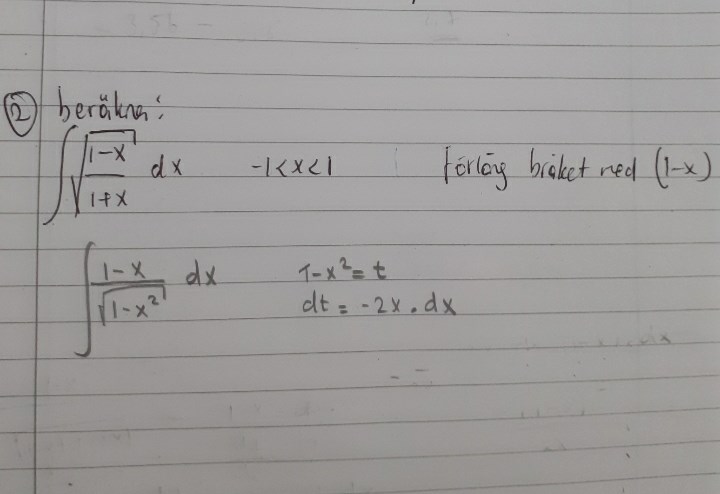 ② beräkna:
∫√((1-x)/(1+x)) dx -1<x<1 förläng bråket med (1-x)
∫(1-x)/√(1-x²) dx 1-x² = t
dt = -2x . dx